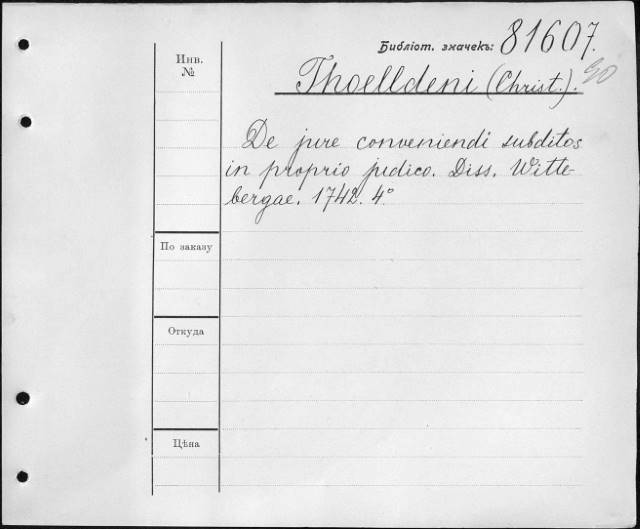 Библіот. значекъ: 81607.
Инв.
№
Thoelldeni (Christ.).
De jure conveniendi subditos
in proprio judico. Diss. Witte-
bergae. 1742. 4°
По заказу
Откуда
Цѣна